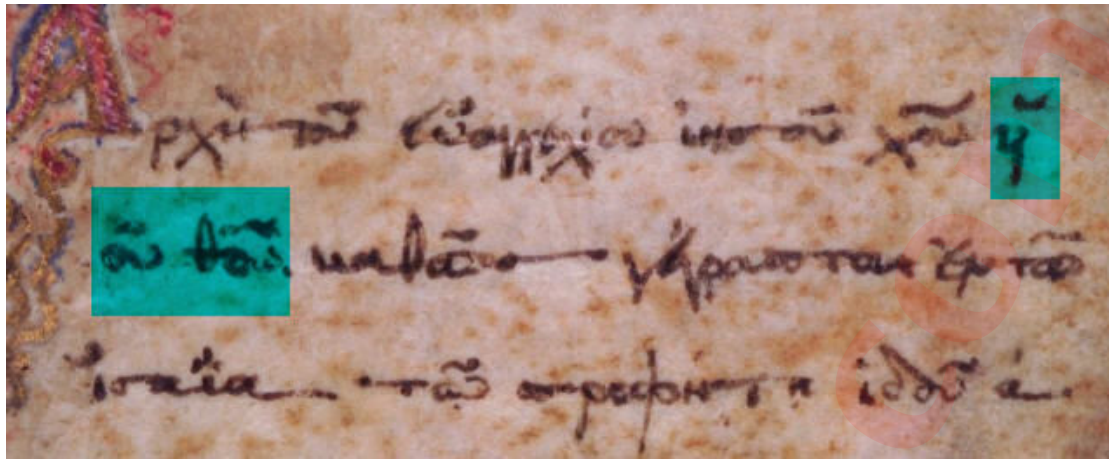 Ἀρχὴ τοῦ εὐαγγελίου ἰησοῦ χοῦ ὑ
οῦ θοῦ. καθὼς γέγραπται ἐν τῶ
ἰσαΐα τῶ προφήτη ἰδοὺ ἀ.